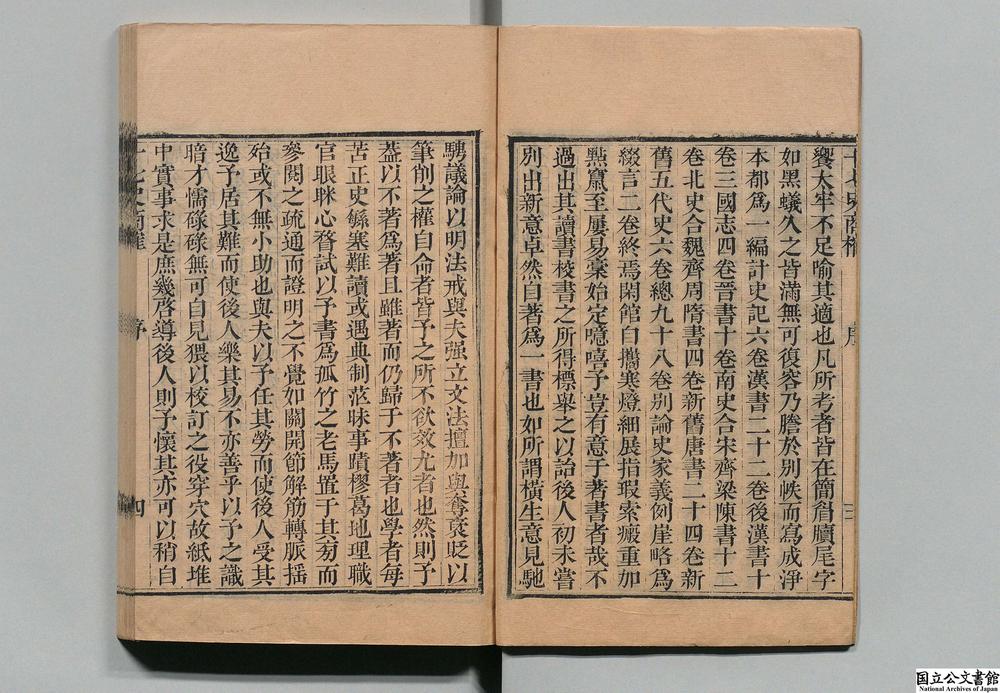 饗大牢不足喻其適也凡所考者皆在簡眉牘尾字
如黑蟻久之皆滿無可復容乃謄於別帙而寫成淨
本都爲一編計史記六卷漢書二十二卷後漢書十
卷三國志四卷晉書十卷南史合宋齊梁陳書十二
卷北史合魏齊周隋書四卷新舊唐書二十四卷新
舊五代史六卷總九十八卷別論史家義例崖略爲
綴言二卷終焉閑館自攜寒燈細展指瑕索瘢重加
點竄至屢易稾始定噫嘻予豈有意于著書者哉不
過出其讀書校書之所得標舉之以詒後人初未嘗
別出新意卓然自著爲一書也如所謂橫生意見馳
騁議論以明法戒與夫强立文法擅加與奪褒貶以
筆削之權自命者皆予之所不欲效尤者也然則予
葢以不著爲著且雖著而仍歸于不著者也學者每
苦正史緐塞難讀或遇典制茫昧事蹟樛葛地理職
官眼眯心瞀試以予書爲孤竹之老馬置于其旁而
參閱之疏通而證明之不覺如關開節解筋轉脈搖
殆或不無小助也與夫以予任其勞而使後人受其
逸予居其難而使後人樂其易不亦善乎以予之識
暗才懦碌碌無可自見猥以校訂之役穿穴故紙堆
中實事求是庶幾啓導後人則予懷其亦可以稍自
十七史商榷
序
四
国立公文書館
National Archives of Japan